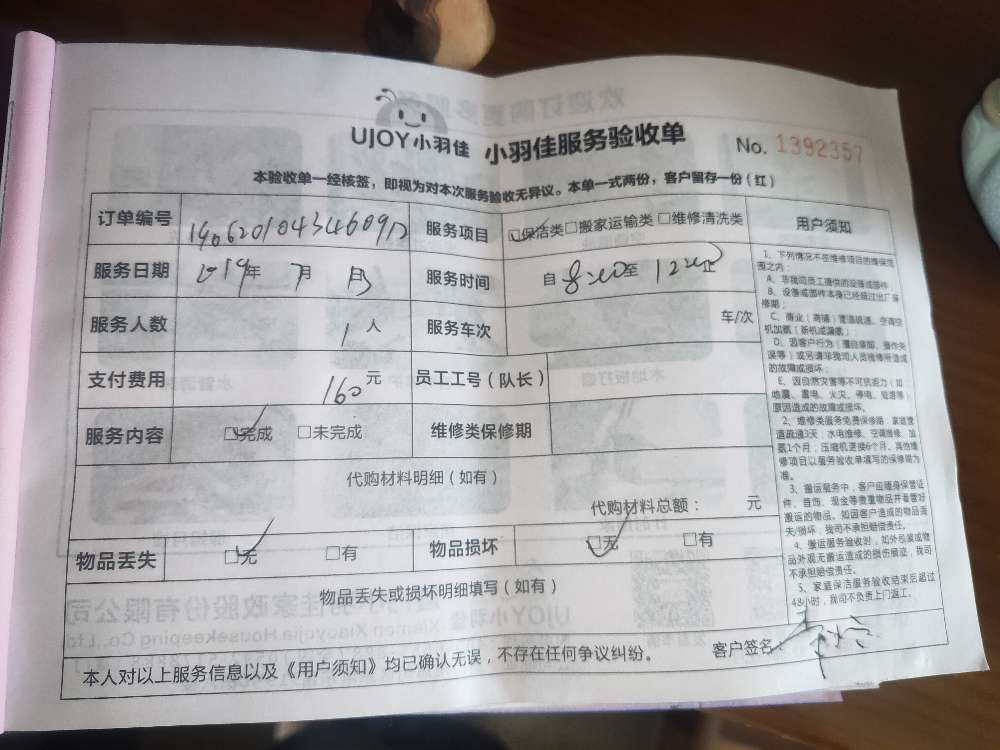 UJOY小羽佳 小羽佳服务验收单 No. 1392357
本验收单一经核签，即视为对本次服务验收无异议。本单一式两份，客户留存一份（红）
订单编号 服务项目 ☑保洁类 □搬家运输类 □维修清洗类
服务日期 2019年 月 日 服务时间 自 8:00 至 12:00 止
服务人数 1人 服务车次 车/次
支付费用 160元 员工工号（队长）
服务内容 ☑完成 □未完成 维修类保修期
代购材料明细（如有）
代购材料总额： 元
物品丢失 ☑无 □有 物品损坏 ☑无 □有
物品丢失或损坏明细填写（如有）
本人对以上服务信息以及《用户须知》均已确认无误，不存在任何争议纠纷。 客户签名：
用户须知
1、下列情况不在维修项目的维保范
围之内：
A、非我司员工提供的设备或部件
B、设备或部件本身已经超过出厂保
修期；
C、商业（商铺）管道疏通、空调空
机加氨（新机或漏氨）；
D、因客户行为（擅自拿卸、操作失
误等）或另请非我司人员维修所造成
的故障或损坏；
E、因自然灾害等不可抗逆力（如
地震、雷电、火灾、停电、短路等）
原因造成的故障或损坏。
2、维修类服务免费保修期：家庭管
道疏通3天；水电维修、空调维修、加
氨1个月；压缩机更换6个月。其他维
修项目以服务验收单填写的保修期为
准。
3、搬运服务中，客户应随身保管证
件、首饰、现金等贵重物品并看管好
搬运的物品。如因客户造成的物品丢
失/损坏，我司不承担赔偿责任。
4、搬运服务验收时，如外包装或物
品外观无搬运造成的损伤痕迹，我司
不承担赔偿责任。
5、家庭保洁服务验收结束后超过
48小时，我司不负责上门返工。